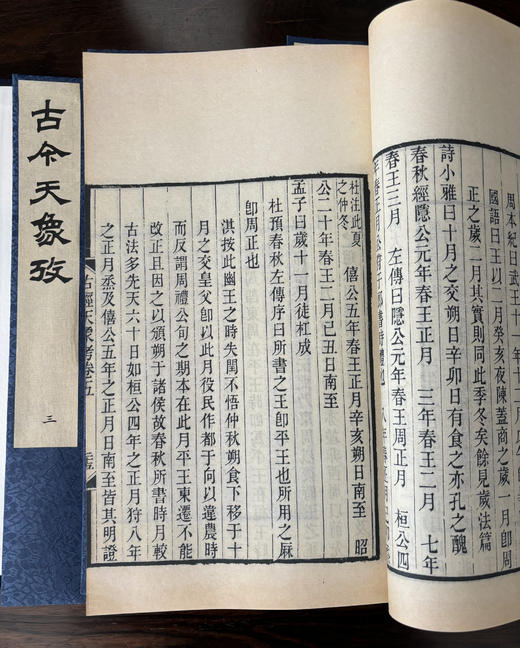 周本紀曰武王十一年
國語曰王以二月癸亥夜陳蓋商之歲一月卽周
正之歲二月其實則同此季冬矣餘見歲法篇
詩小雅曰十月之交朔日辛卯日有食之亦孔之醜
春秋經隱公元年春王正月 三年春王二月 七年
春王三月 左傳曰隱公元年春王周正月 桓公四
年春王正月公
杜注此夏
之仲冬 僖公五年春王正月辛亥朔日南至 昭
公二十年春王二月己丑日南至
孟子曰歲十一月徒杠成
杜預春秋左傳序曰所書之王卽平王也所用之厤
卽周正也
淇按此幽王之時失閏不悟仲秋朔食下移于十
月之交皇父卽以此月役民作都于向以違農時
而反謂周禮公旬之期本在此月平王東遷不能
改正且因之以頒朔于諸侯故春秋所書時月較
古法多先天六十日如桓公四年之正月狩八年
之正月烝及僖公五年之正月日南至皆其明證
古經天象考卷五
古今天象攷
三